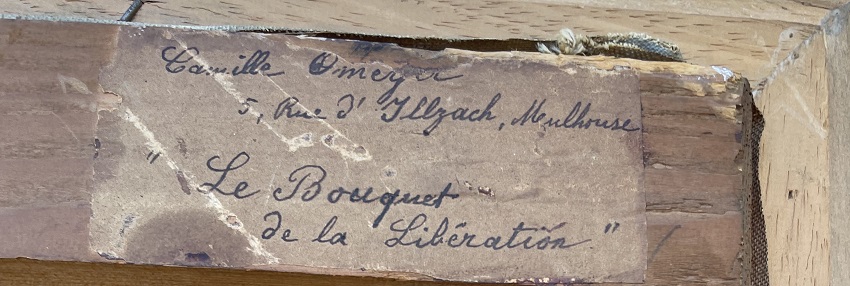 Camille Omeyer
5, Rue d'Illzach, Mulhouse
"Le Bouquet
de la Libération"